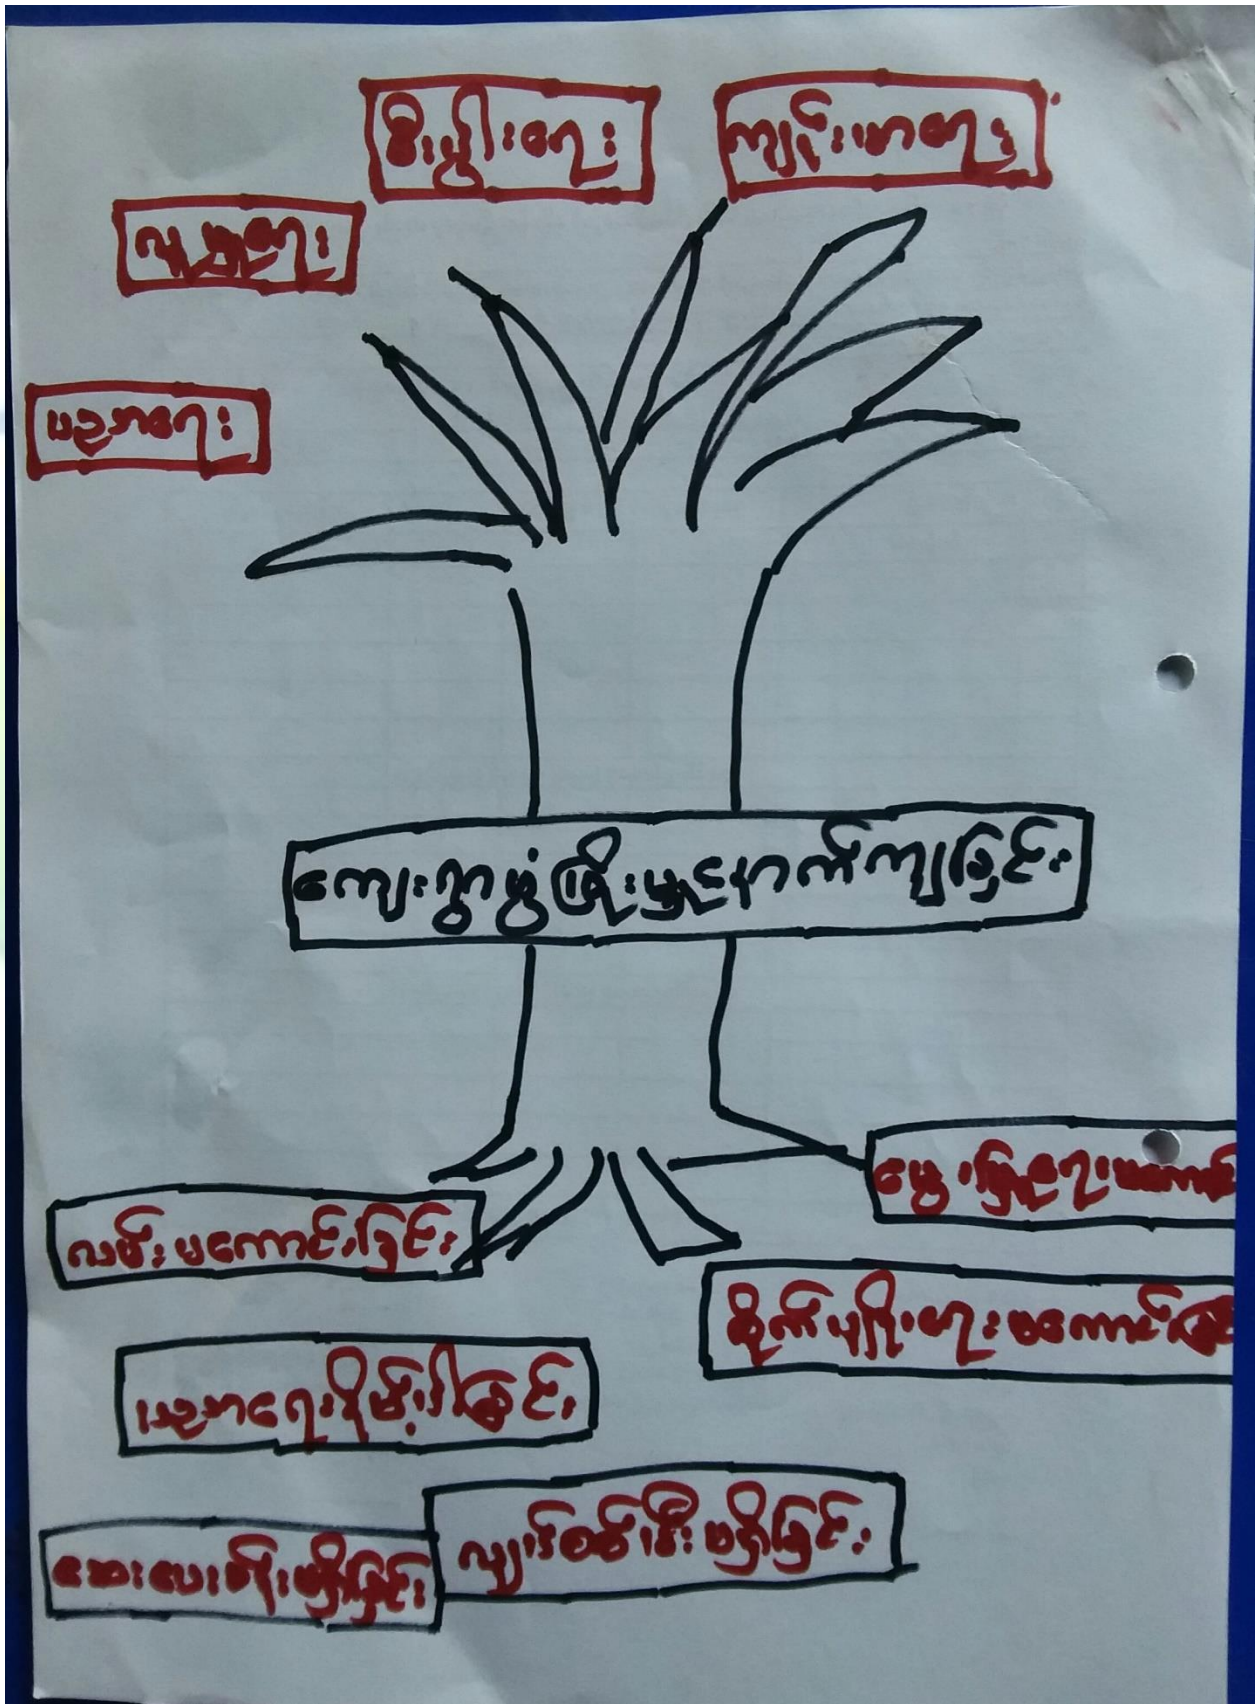 စီးပွါးရေး
ကျန်းမာရေး
လူမှုရေး
ပညာရေး
ကျေးရွာဖွံ့ဖြိုးမှုနောက်ကျခြင်း
မွေးမြူရေးမကောင်း
လမ်းမကောင်းခြင်း
စိုက်ပျိုးရေးမကောင်း
ပညာရေးနိမ့်ပါးခြင်း
လျှပ်စစ်မီးမရှိခြင်း
ဆေးပေးခန်းမရှိခြင်း